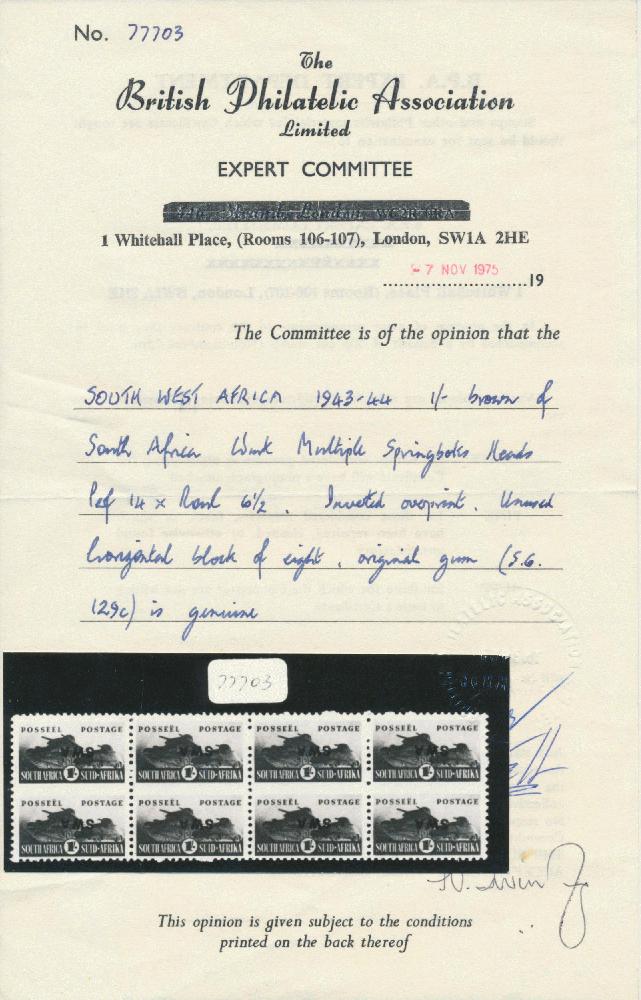 No. 77703
The
British Philatelic Association
Limited
EXPERT COMMITTEE
1 Whitehall Place, (Rooms 106-107), London, SW1A 2HE
- 7 NOV 1975
19
The Committee is of the opinion that the
SOUTH WEST AFRICA 1943-44 1/- brown of
South Africa Wmk Multiple Springboks Heads
Perf 14 x Roul 6½. Inverted overprint. Unused
horizontal block of eight, original gum (S.G.
129c) is genuine
77703
POSSEËL POSTAGE POSSEËL POSTAGE POSSEËL POSTAGE POSSEËL POSTAGE
SWA SWA SWA SWA
SOUTH AFRICA 1/- SUID-AFRIKA SOUTH AFRICA 1/- SUID-AFRIKA SOUTH AFRICA 1/- SUID-AFRIKA SOUTH AFRICA 1/- SUID-AFRIKA
POSSEËL POSTAGE POSSEËL POSTAGE POSSEËL POSTAGE POSSEËL POSTAGE
SWA SWA SWA SWA
SOUTH AFRICA 1/- SUID-AFRIKA SOUTH AFRICA 1/- SUID-AFRIKA SOUTH AFRICA 1/- SUID-AFRIKA SOUTH AFRICA 1/- SUID-AFRIKA
This opinion is given subject to the conditions
printed on the back thereof